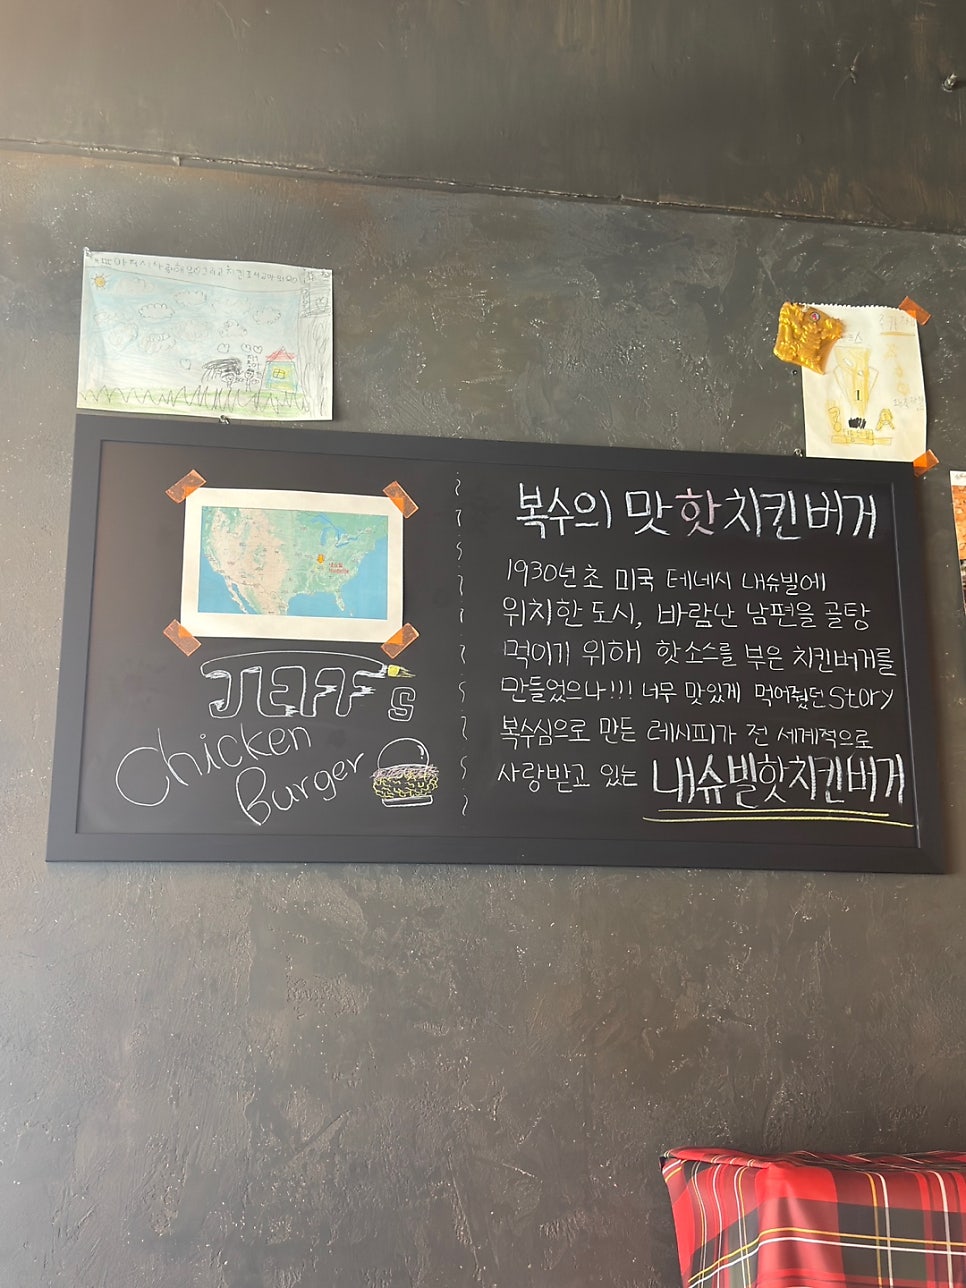 JEFF's
Chicken
Burger
복수의 맛 핫치킨버거
1930년 초 미국 테네시 내슈빌에
위치한 도시, 바람난 남편을 골탕
먹이기 위해 핫소스를 부은 치킨버거를
만들었으나!!! 너무 맛있게 먹어줬던 Story
복수심으로 만든 레시피가 전 세계적으로
사랑받고 있는 내슈빌핫치킨버거